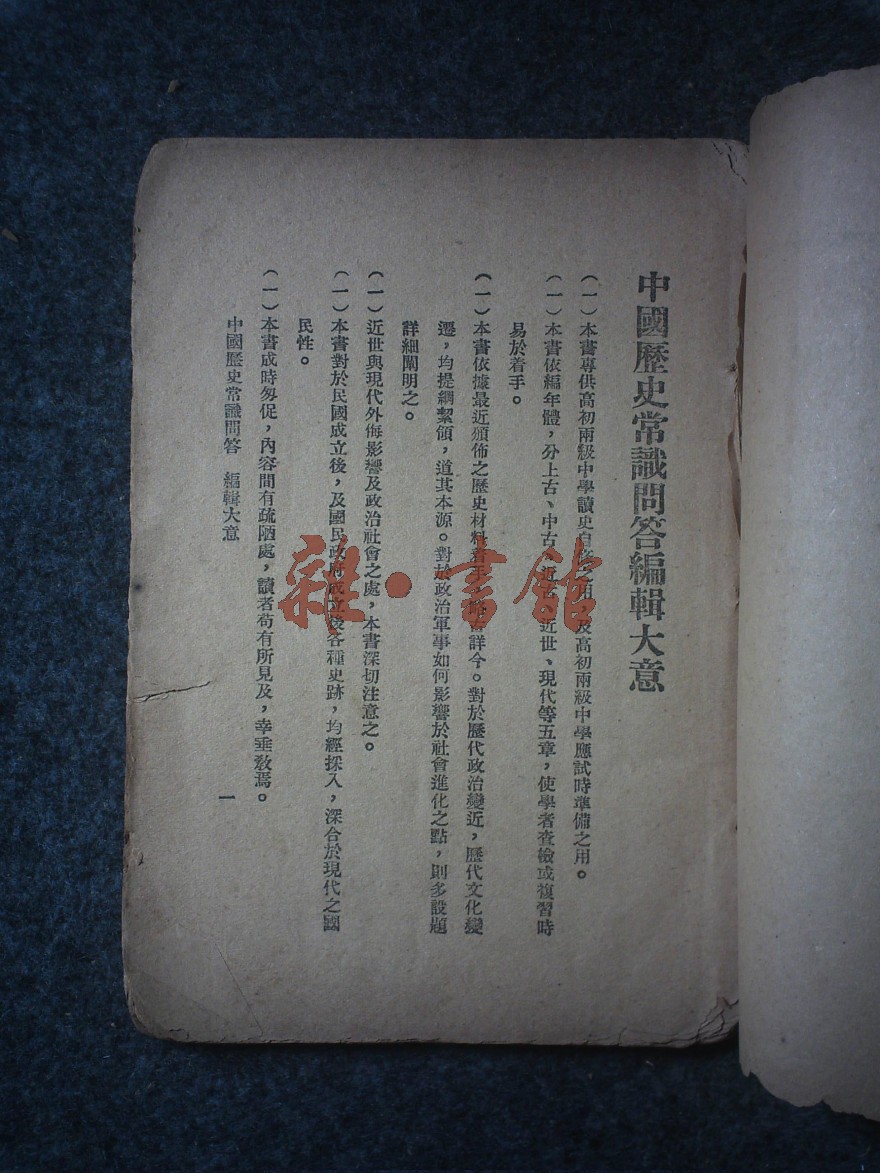 中國歷史常識問答編輯大意
（一）本書專供高初兩級中學讀史自修之用，及高初兩級中學應試時準備之用。
（一）本書依編年體，分上古、中古、近世、現代等五章，使學者查檢或複習時
易於着手。
（一）本書依據最近頒佈之歷史材料着手，詳今。對於歷代政治變近，歷代文化變
遷，均提綱絜領，道其本源。對於政治軍事如何影響於社會進化之點，則多設題
詳細闡明之。
（一）近世與現代外侮影響及政治社會之處，本書深切注意之。
（一）本書對於民國成立後，及國民政府成立後各種史跡，均經採入，深合於現代之國
民性。
（一）本書成時匆促，內容間有疏陋處，讀者苟有所見及，幸垂敎焉。
中國歷史常識問答　編輯大意
一
雜·書館